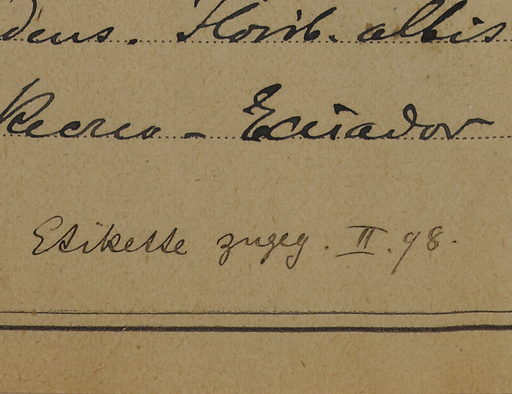 dens. Florib. albis
Recreo - Ecuador
Etikette zugeg. III. 98.